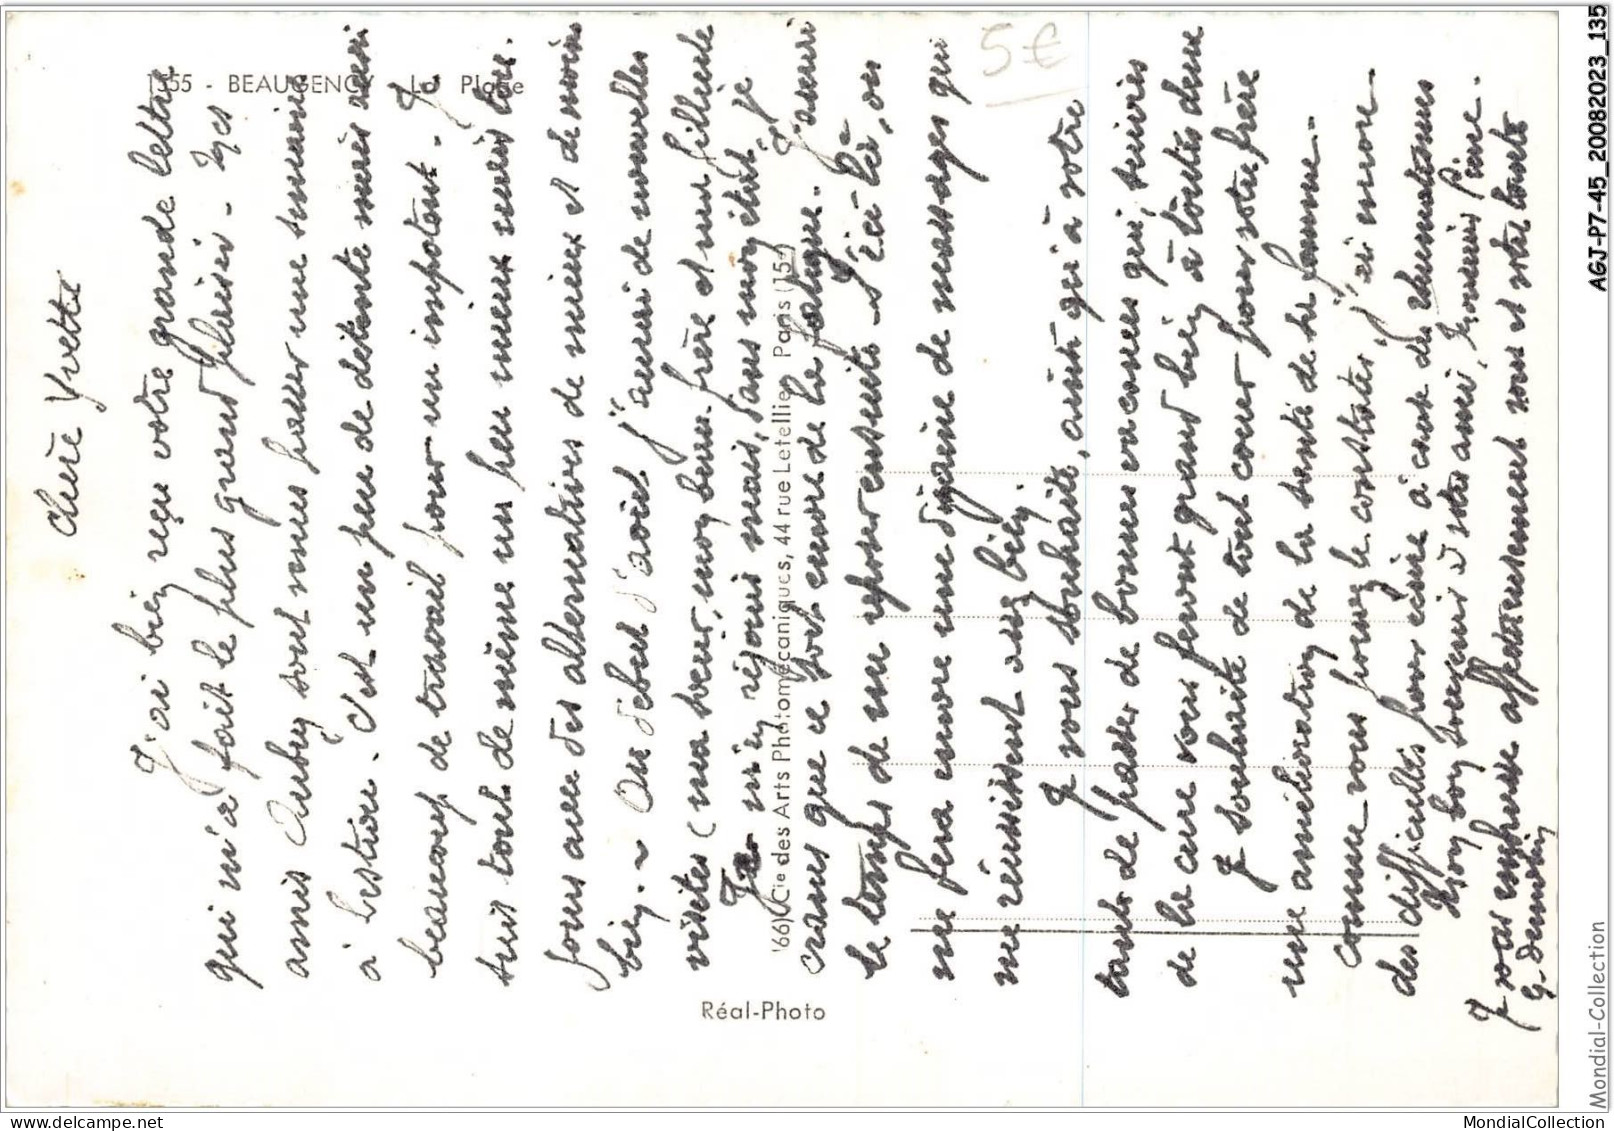 1155 - BEAUGENCY - La Plage
5€
Chère Yvette
J'ai bien reçu votre grande lettre
qui m'a fait le plus grand plaisir. Les
amis Aubry sont venus passer une semaine
à . C'est un peu de détente mais aussi
beaucoup de travail pour un impotent. Je
suis tout de même un peu mieux mais bas.
Jours avec des alternatives de mieux et de moins
bien. Au début d'août j'aurai de nouvelles
visites (ma sœur, mon beau frère et une filleule
Je m'en réjouis mais, dans mon état, je
crains que ce soit encore de la fatigue. J'aurai
le temps de me reposer ensuite. D'ici-là, on
me fera encore une dizaine de massages qui
me réussissent assez bien.
Je vous souhaite, ainsi qu'à votre
tante de passer de bonnes vacances qui, suivies
de la cure vous feront grand bien à toutes deux
Je souhaite de tout cœur pour votre frère
une amélioration de la santé de sa femme.
Comme vous pouvez le constater, j'ai encore
des difficultés pour écrire à cause de rhumatismes
Mon bon souvenir à votre amie,
Je vous embrasse affectueusement vous et votre tante
G.
Réal-Photo
(66) Cie des Arts Photomécaniques, 44 rue Letellier, Paris (15e)
AGJ-P7-45_20082023_135
Mondial-Collection
MondialCollection